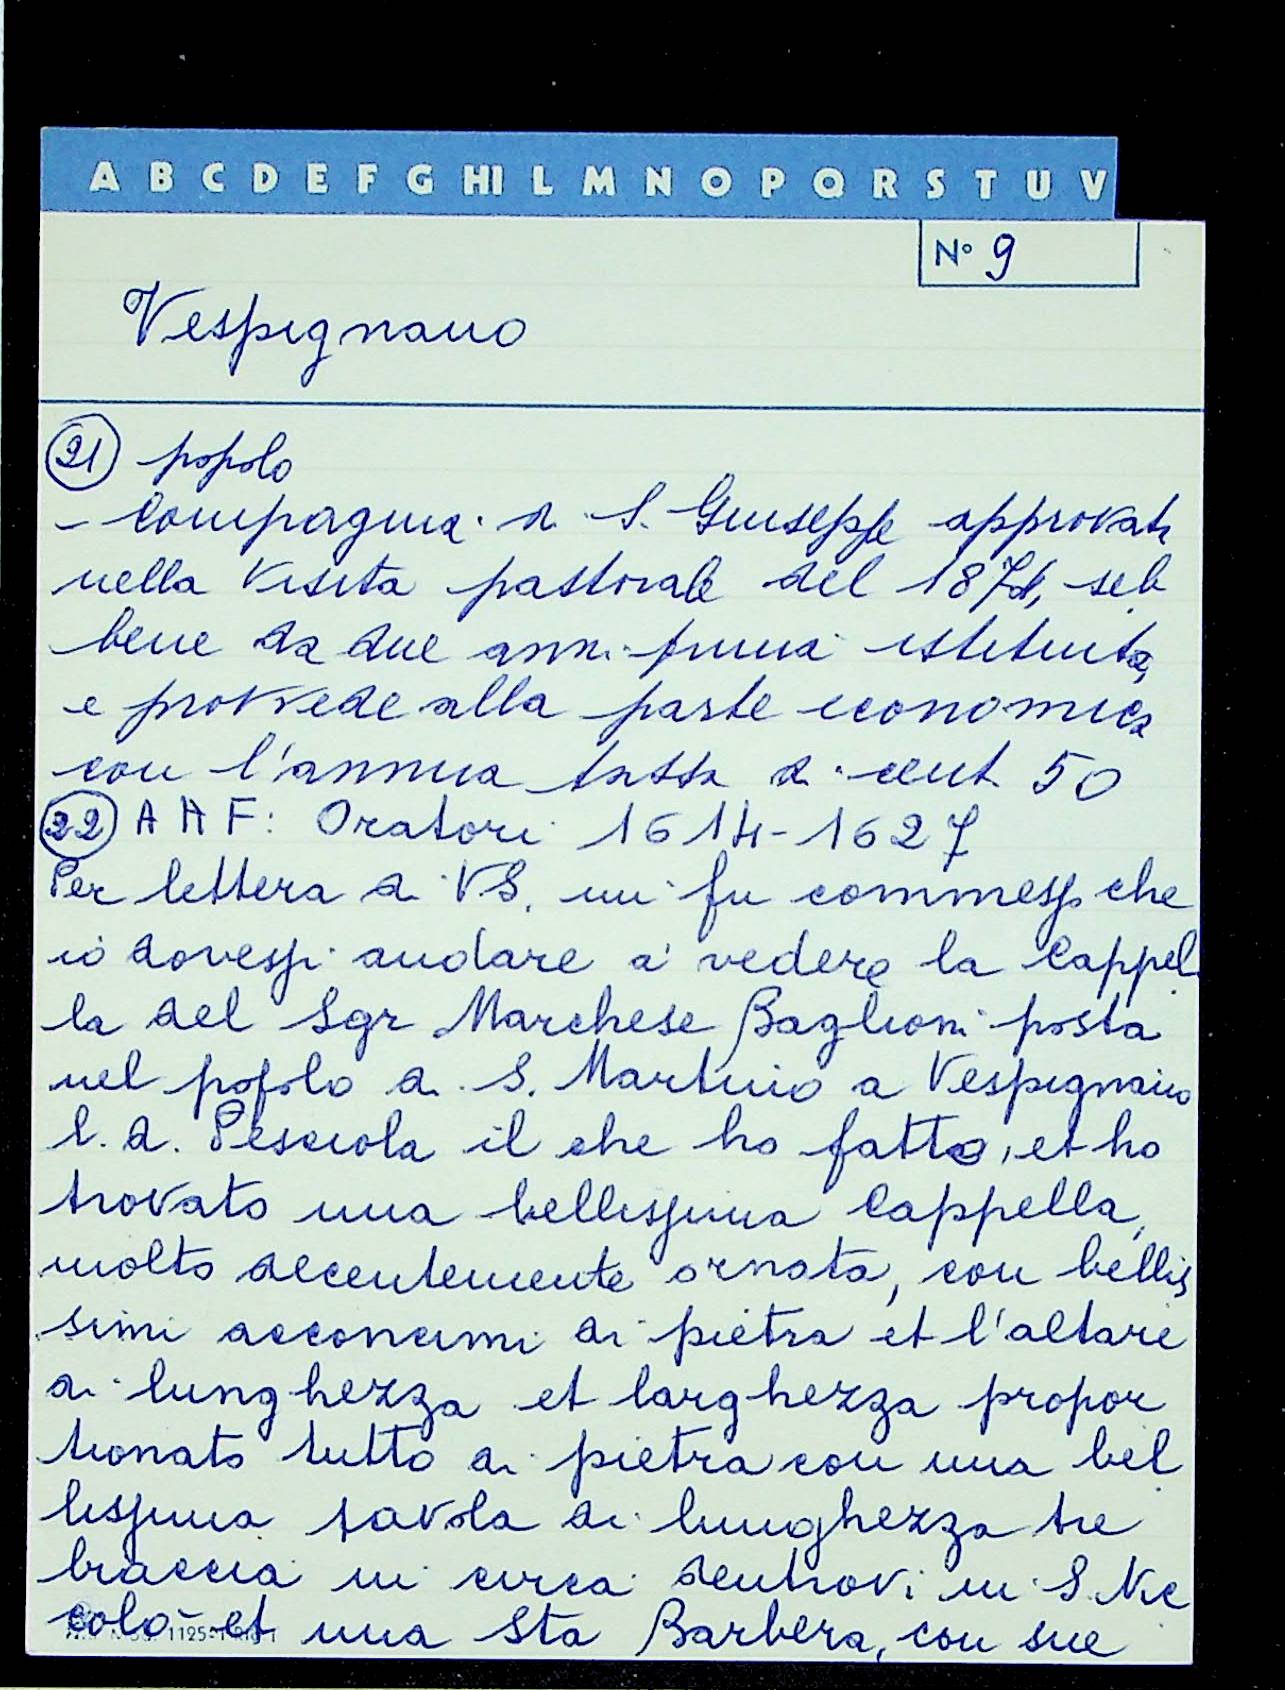 A B C D E F G HI L M N O P Q R S T U V
N° 9
Vespignano
21 popolo
- Compagnia di S. Giuseppe approvata
nella visita pastorale del seb
bene da due anni prima istituita,
e provvede alla parte economica
con l'annua tassa di cent. 50
22 A A F: Oratori 1614-1627
Per lettera di VS. mi fu commesso che
io dovessi andare a vedere la Cappel
la del Sgr Marchese Baglioni posta
nel popolo di S. Martino a Vespignano
l. d. Pesciola il che ho fatto, et ho
trovato una bellissima Cappella,
molto decentemente ornata, con bellis
simi acconcimi di pietra et l'altare
di lunghezza et larghezza propor
tionato tutto di pietra con una bel
lissima tavola di lunghezza tre
braccia in circa dentrovi un S. Nic
colo et una Sta Barbera, con sue